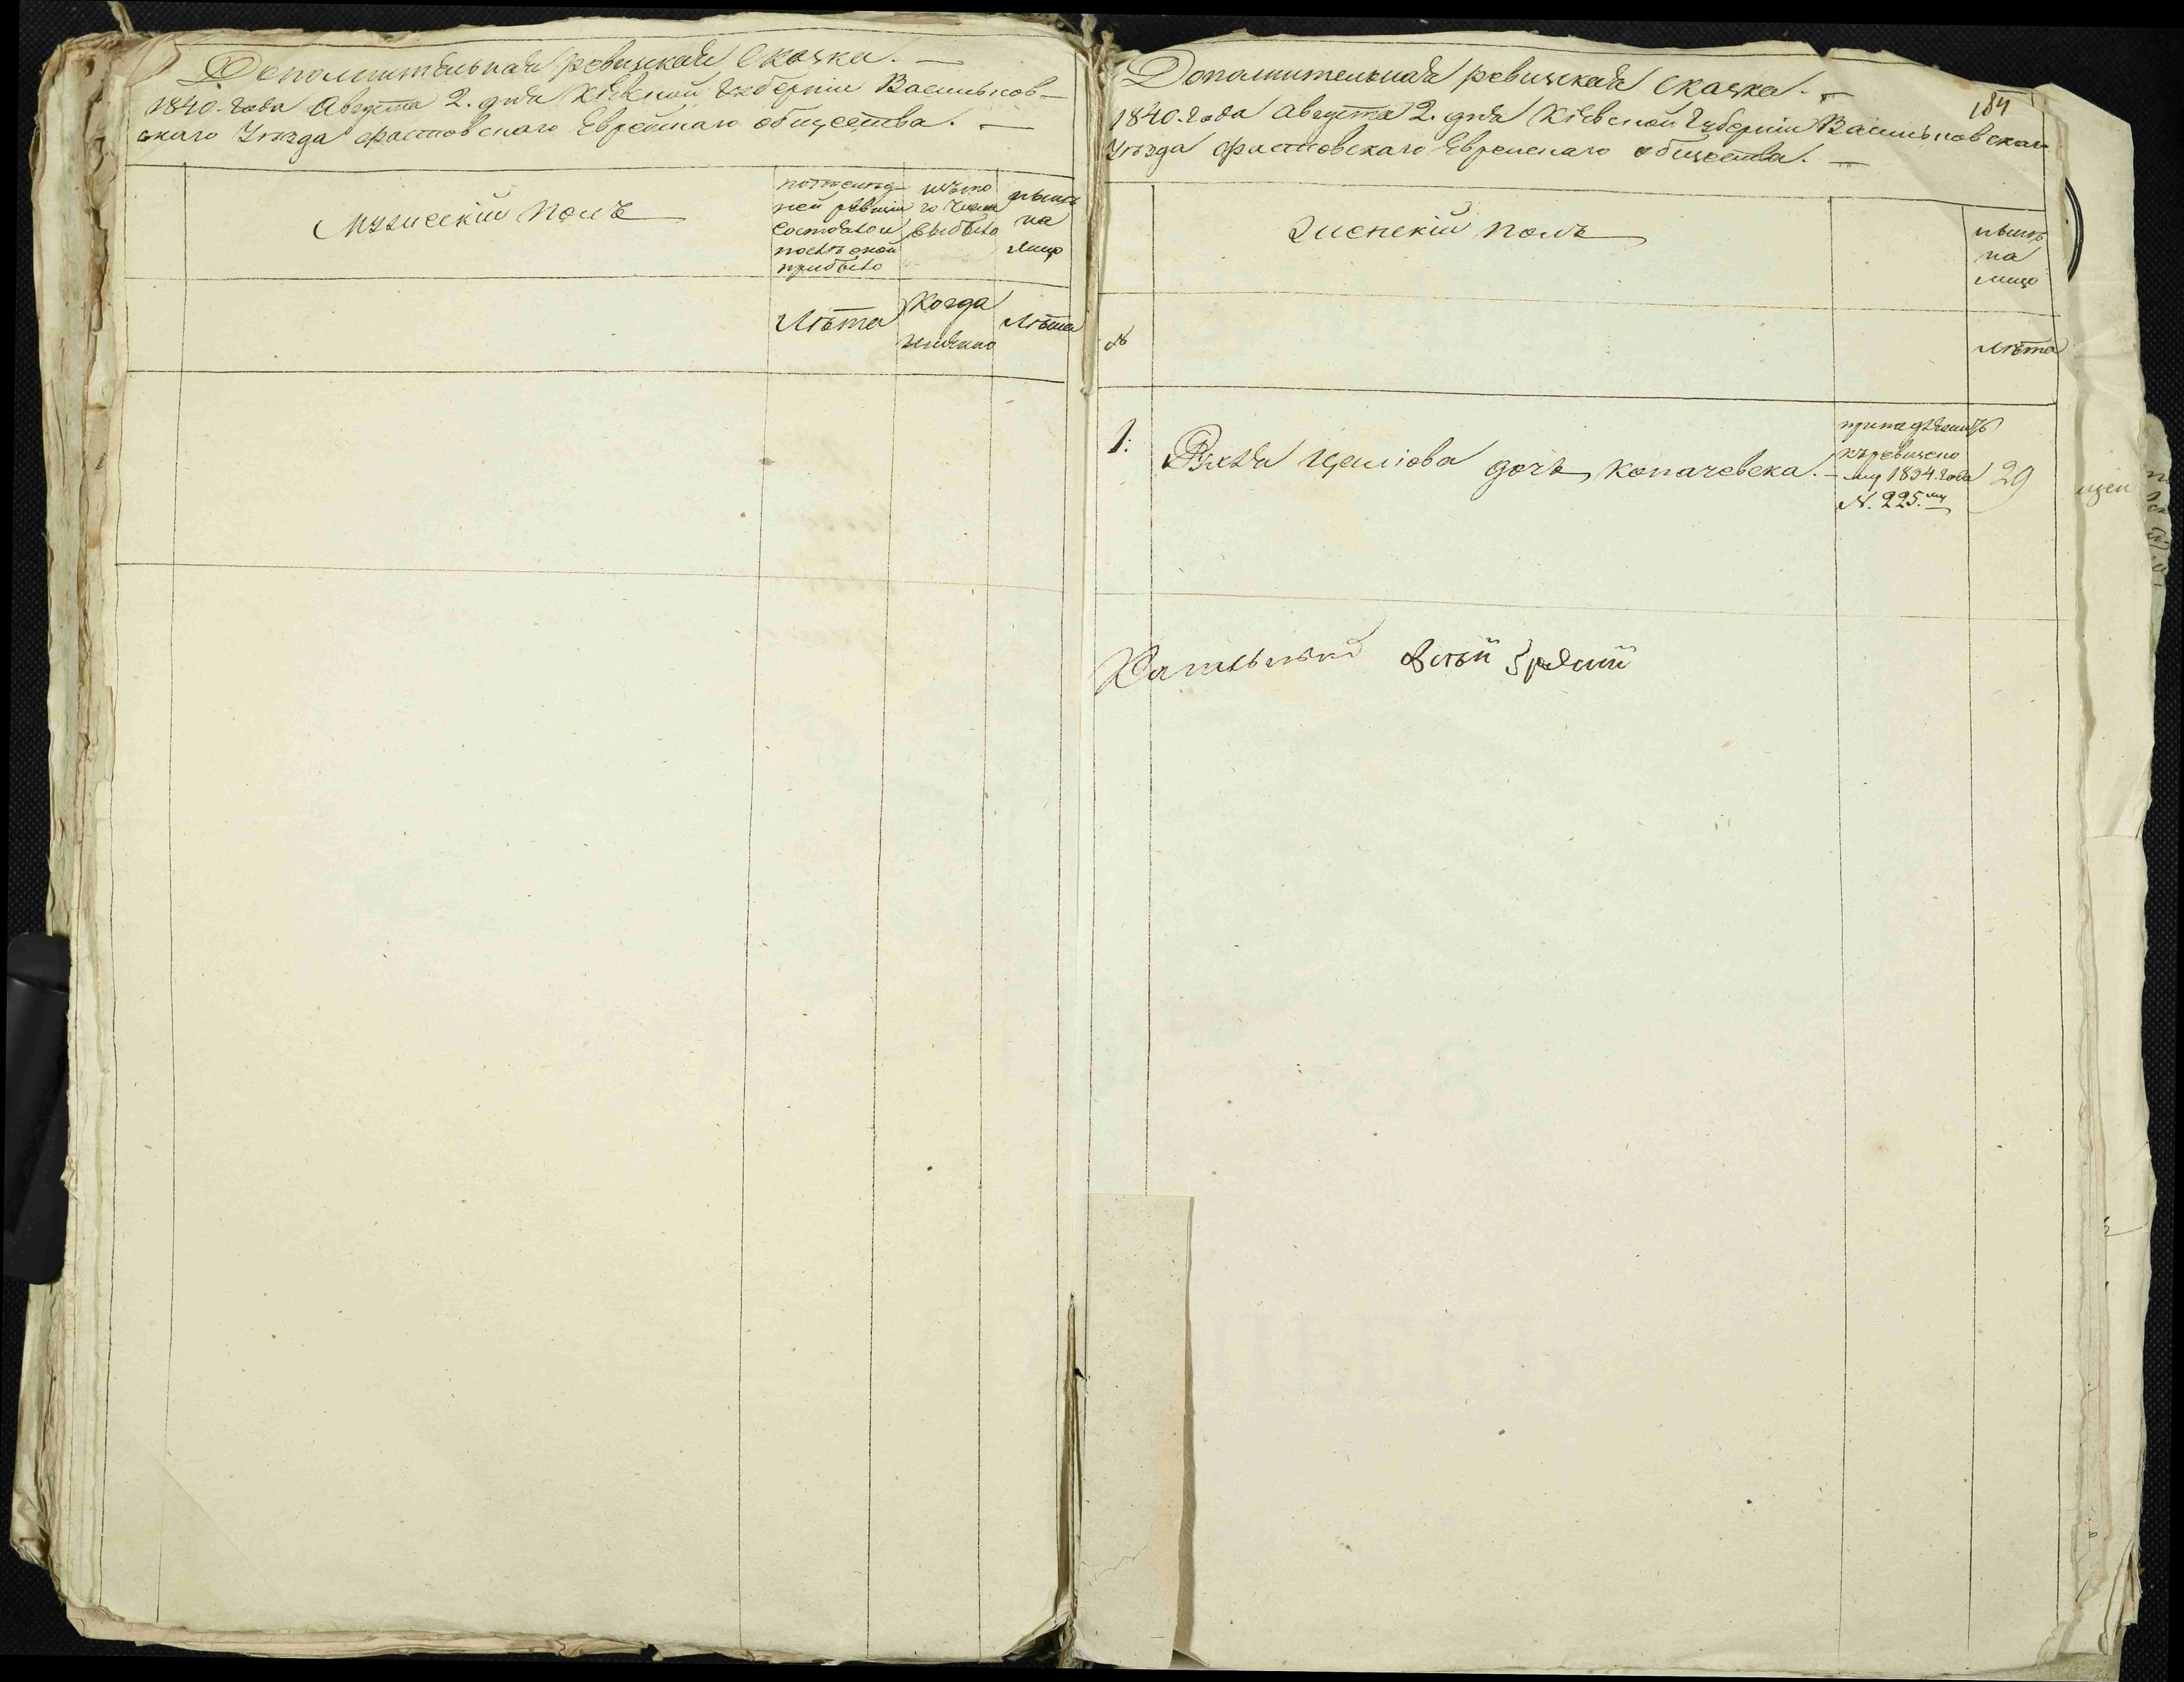 Дополнительная ревизская сказка. —
1840. года Августа 2. дня Кіевской Губерніи Васильков-
скаго Уезда фастовскаго Еврейскаго общества. —
мужескій полъ
по послѣд-
ней ревизіи
состояло и
послѣ оной
прибыло
изъ то
го числа
выбыло
нынѣ
на
лицо
Лѣта
Когда
именно
Лѣта
184
Дополнительная ревизская сказка. —
1840. года августа 2. дня Кіевской Губерніи Васильковскаго
Уезда фастовскаго Еврейскаго общества. —
женскій полъ
нынѣ
на
лицо
№
Лѣта
1.
дочь Копачевска. —
принадлежитъ
къ ревизско
му 1834. года
№. 225.му
29